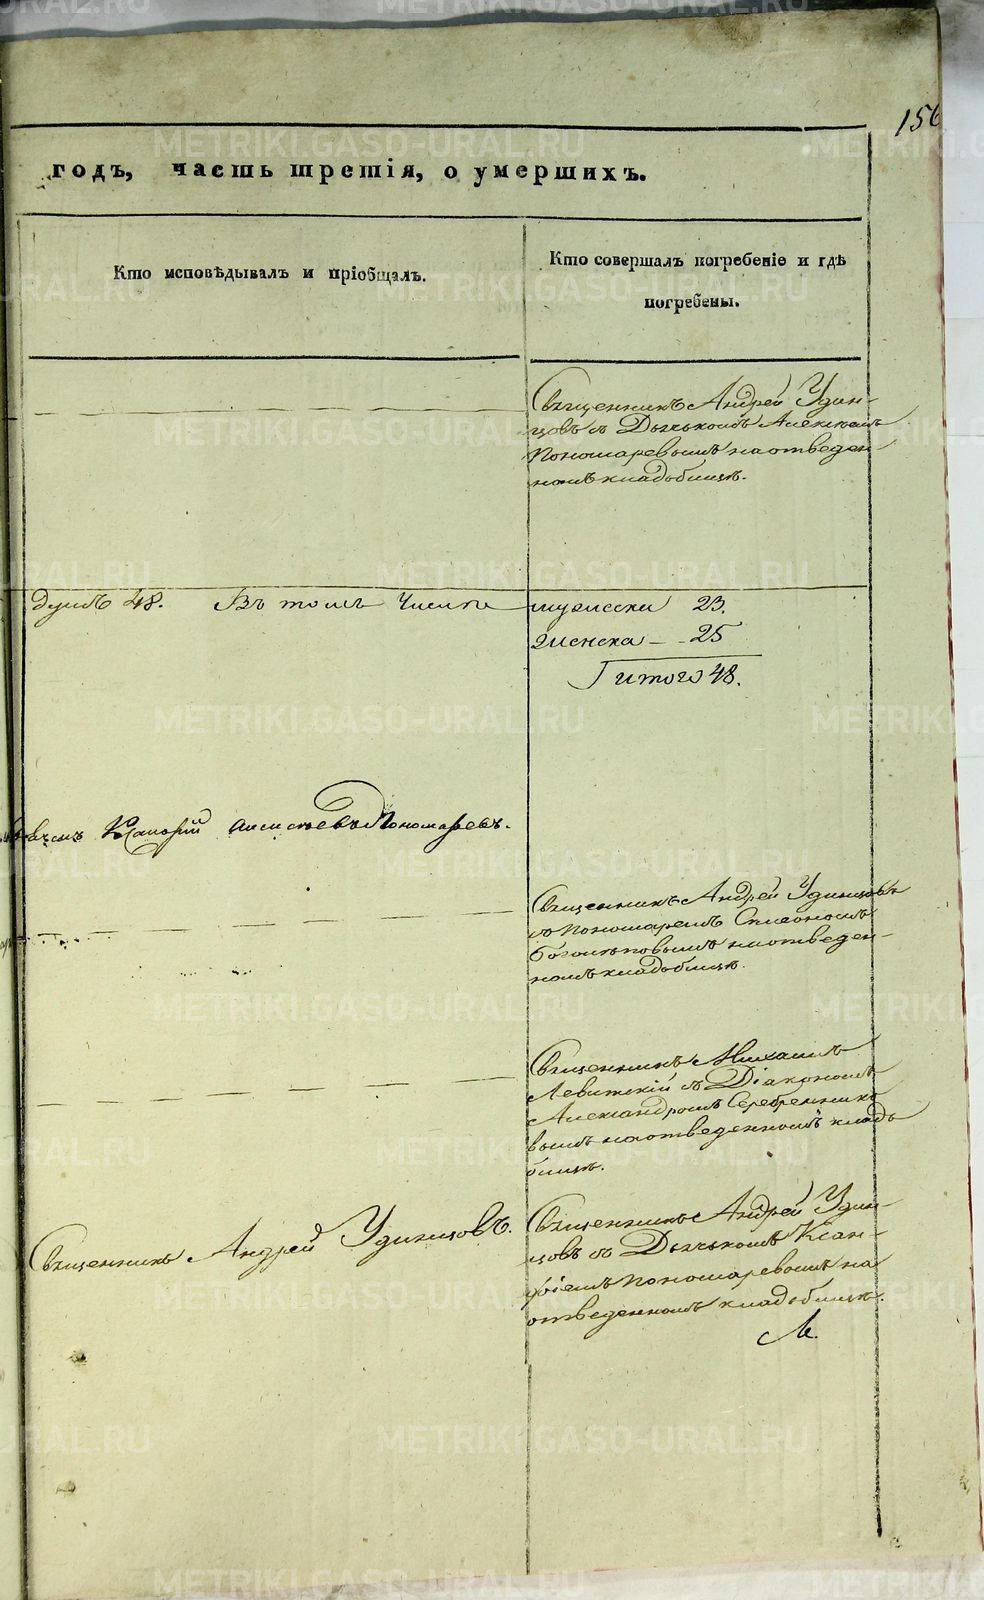 156
годъ, часть третія, о умершихъ.
Кто исповѣдывалъ и пріобщалъ.
Кто совершалъ погребеніе и гдѣ
погребены.
Священникъ Андрей Удин-
цовъ съ Дьячкомъ Алексѣемъ
Пономаревымъ на отведен-
номъ кладбищѣ.
душъ 48. Въ томъ числѣ мужеска 23.
женска - - 25
Итого 48.
Пономаревъ.
Священникъ Андрей Удинцовъ
съ Пономаремъ Симеономъ
Боголѣповымъ на отведен-
номъ кладбищѣ.
Священникъ Михаилъ
Левитскій съ Діакономъ
Александромъ Серебренико
вымъ на отведенномъ кладъ
бищѣ.
Священникъ Андрей Удинцовъ.
Священникъ Андрей Удин-
цовъ съ Дьячкомъ Ксан-
фіемъ Пономаревымъ на
отведенномъ кладбищѣ.
METRIKI.GASO-URAL.RU